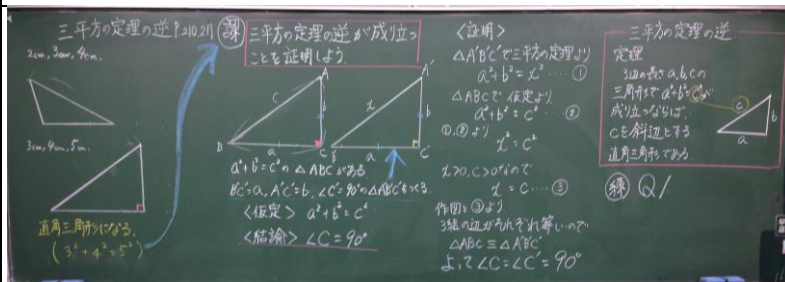 三平方の定理の逆 P.210,211
2cm, 3cm, 4cm.
3cm, 4cm, 5cm.
直角三角形になる.
(3²+4²=5²)
課 三平方の定理の逆が成り立つ
ことを証明しよう.
A
c
b
B
a
C
A'
x
b
B'
a
C'
a²+b²=c²の△ABCがある.
B'C'=a, A'C'=b, ∠C'=90°の△A'B'C'をつくる.
<仮定> a²+b²=c²
<結論> ∠C=90°
<証明>
△A'B'C'で三平方の定理より
a²+b²=x² … ①
△ABCで仮定より
a²+b²=c² … ②
①,②より
x²=c²
x>0, c>0なので
x=c … ③
作図と③より
3組の辺がそれぞれ等しいので
△ABC≡△A'B'C'
よって∠C=∠C'=90°
三平方の定理の逆
定理
3辺の長さa,b,cの
三角形でa²+b²=c²が
成り立つならば,
cを斜辺とする
直角三角形である
c
b
a
練 Q1